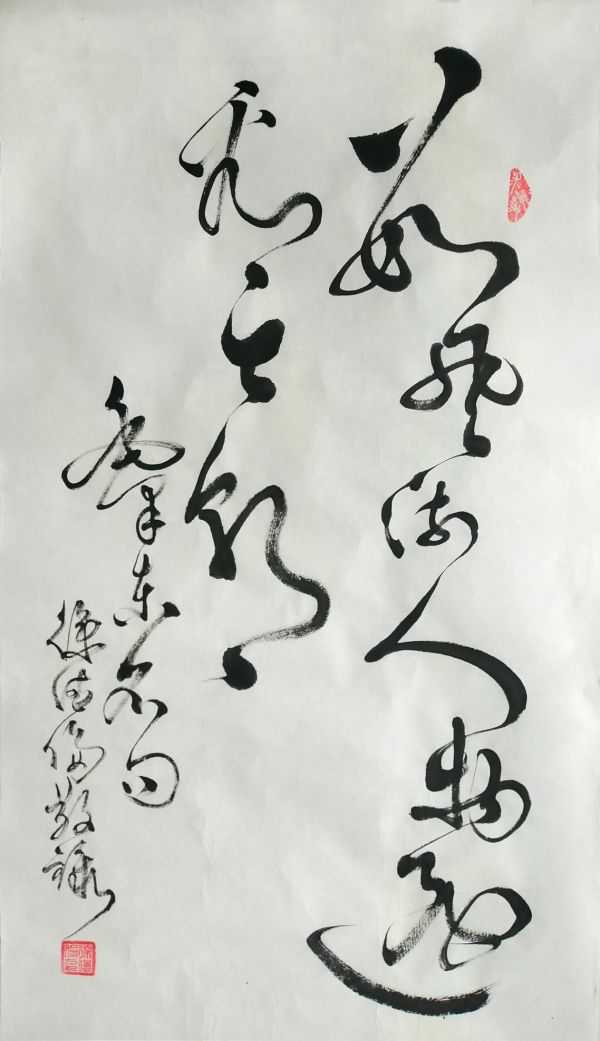 数风流人物还
看今朝
毛泽东名句
徐敬录